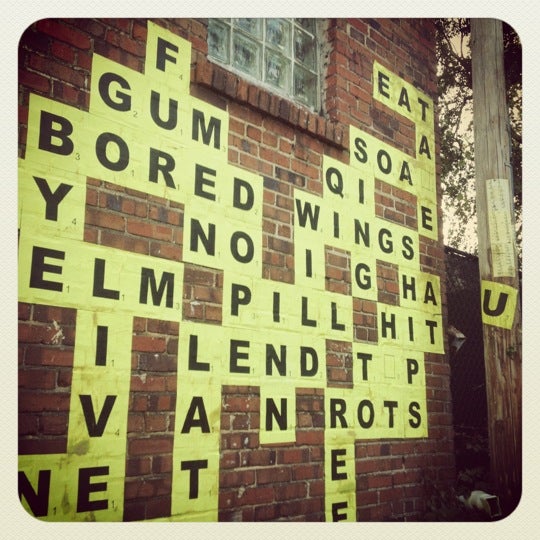 F
GUM
EAT
BORED
SOA
QI
Y
NO
WINGS
E
I
G
HA
ELM
PILL
HIT
U
I
LEND
T
P
V
A
N
ROTS
NE
T
E
E